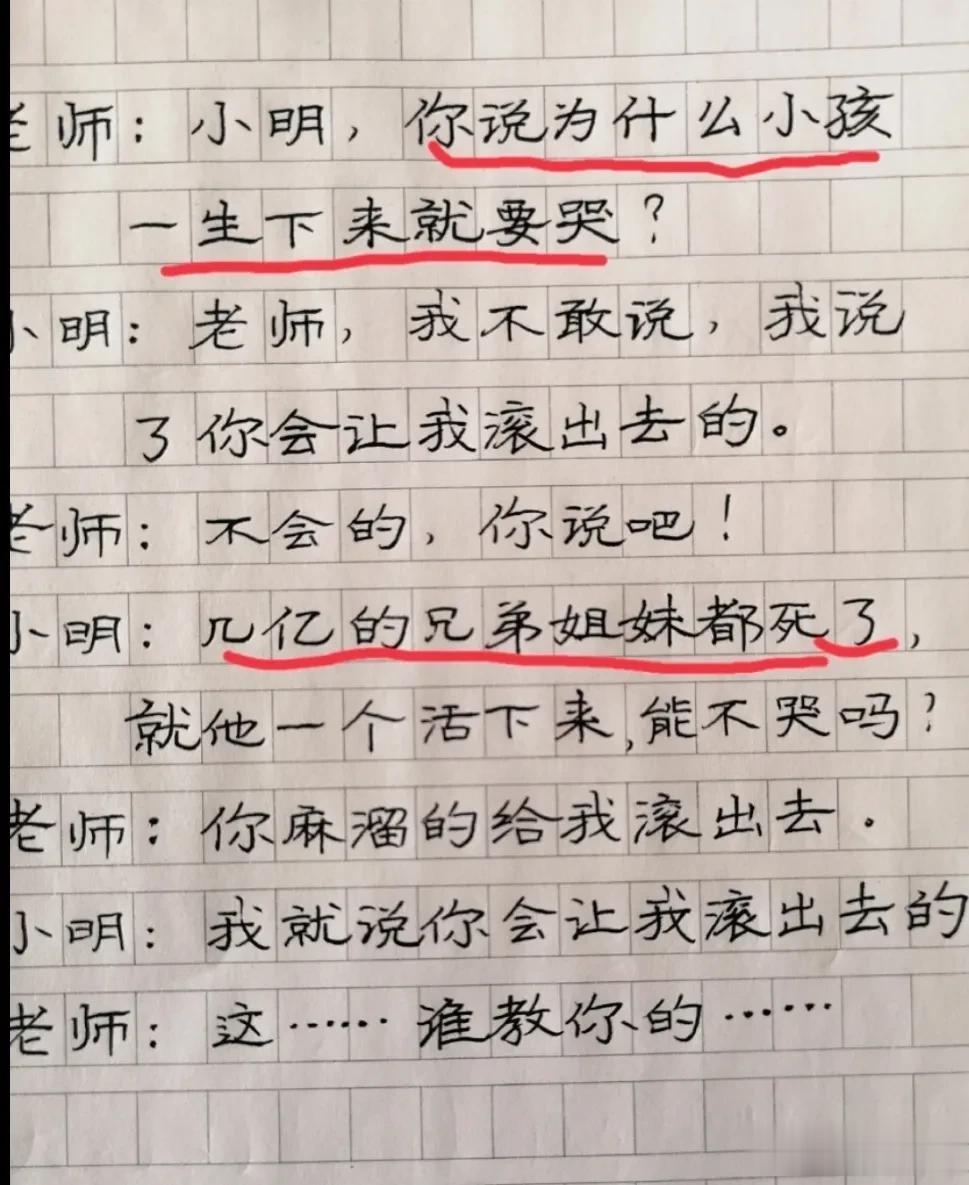 老师：小明，你说为什么小孩
一生下来就要哭？
小明：老师，我不敢说，我说
了你会让我滚出去的。
老师：不会的，你说吧！
小明：几亿的兄弟姐妹都死了，
就他一个活下来，能不哭吗？
老师：你麻溜的给我滚出去．
小明：我就说你会让我滚出去的
老师：这……谁教你的……